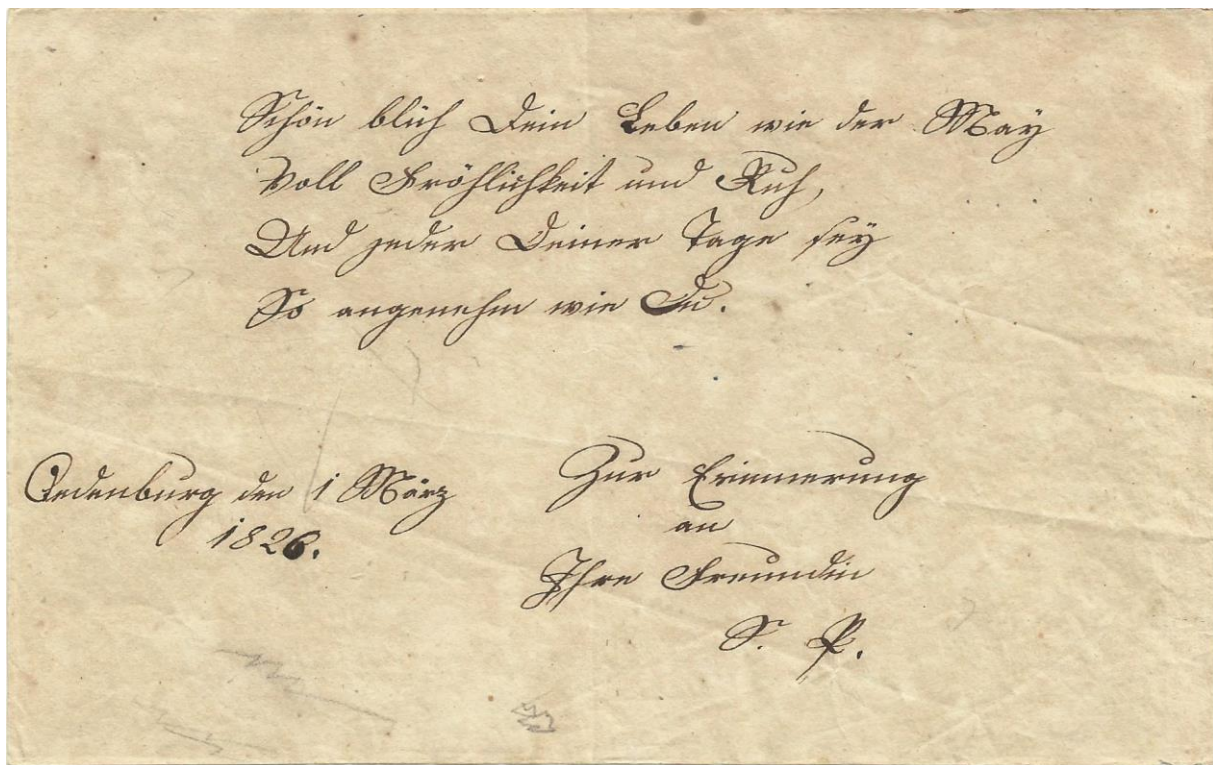 Schön blüh Dein Leben wie der May
Voll Fröhlichkeit und Ruh,
Und jeder Deiner Tage sey
So angenehm wie Du.
Oedenburg den 1 März
1826.
Zur Erinnerung
an
Ihre Freundin
S. P.